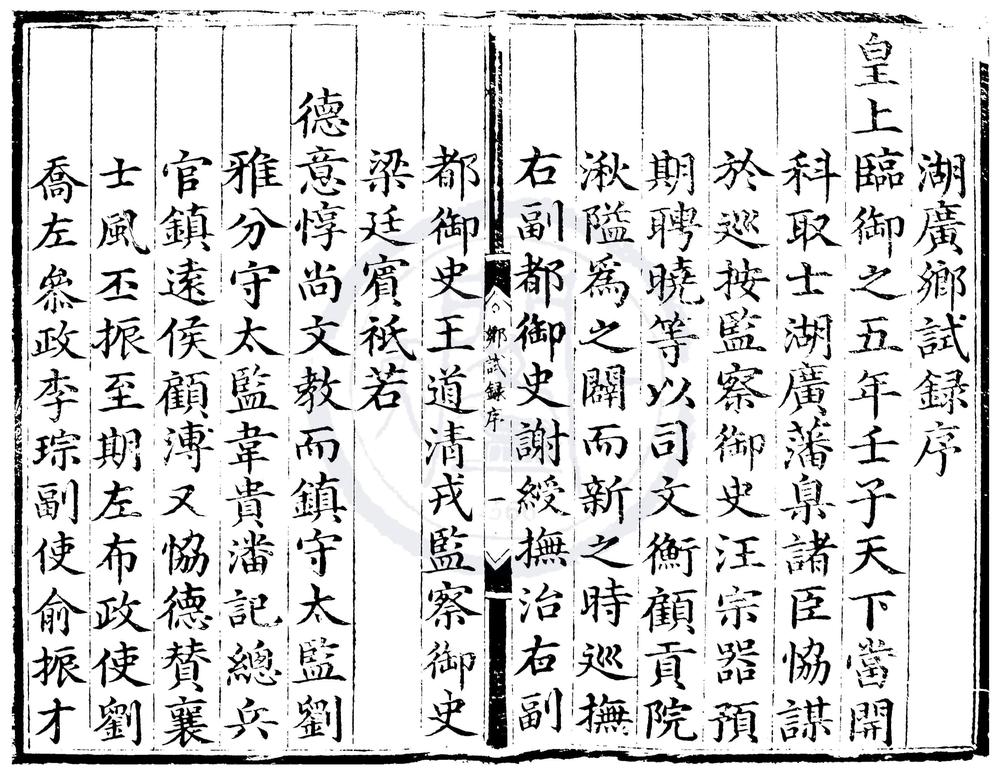 湖廣鄉試録序
皇上臨御之五年壬子天下當開
科取士湖廣藩臬諸臣協謀
於巡按監察御史汪宗器預
期聘曉等以司文衡顧貢院
湫隘爲之闢而新之時巡撫
右副都御史謝綬撫治右副
鄉試録序
一
都御史王道清戎監察御史
梁廷賓祗若
德意惇尚文教而鎮守太監劉
雅分守太監韋貴潘記總兵
官鎮遠侯顧溥又恊德賛襄
士風丕振至期左布政使劉
喬左叅政李琮副使俞振才